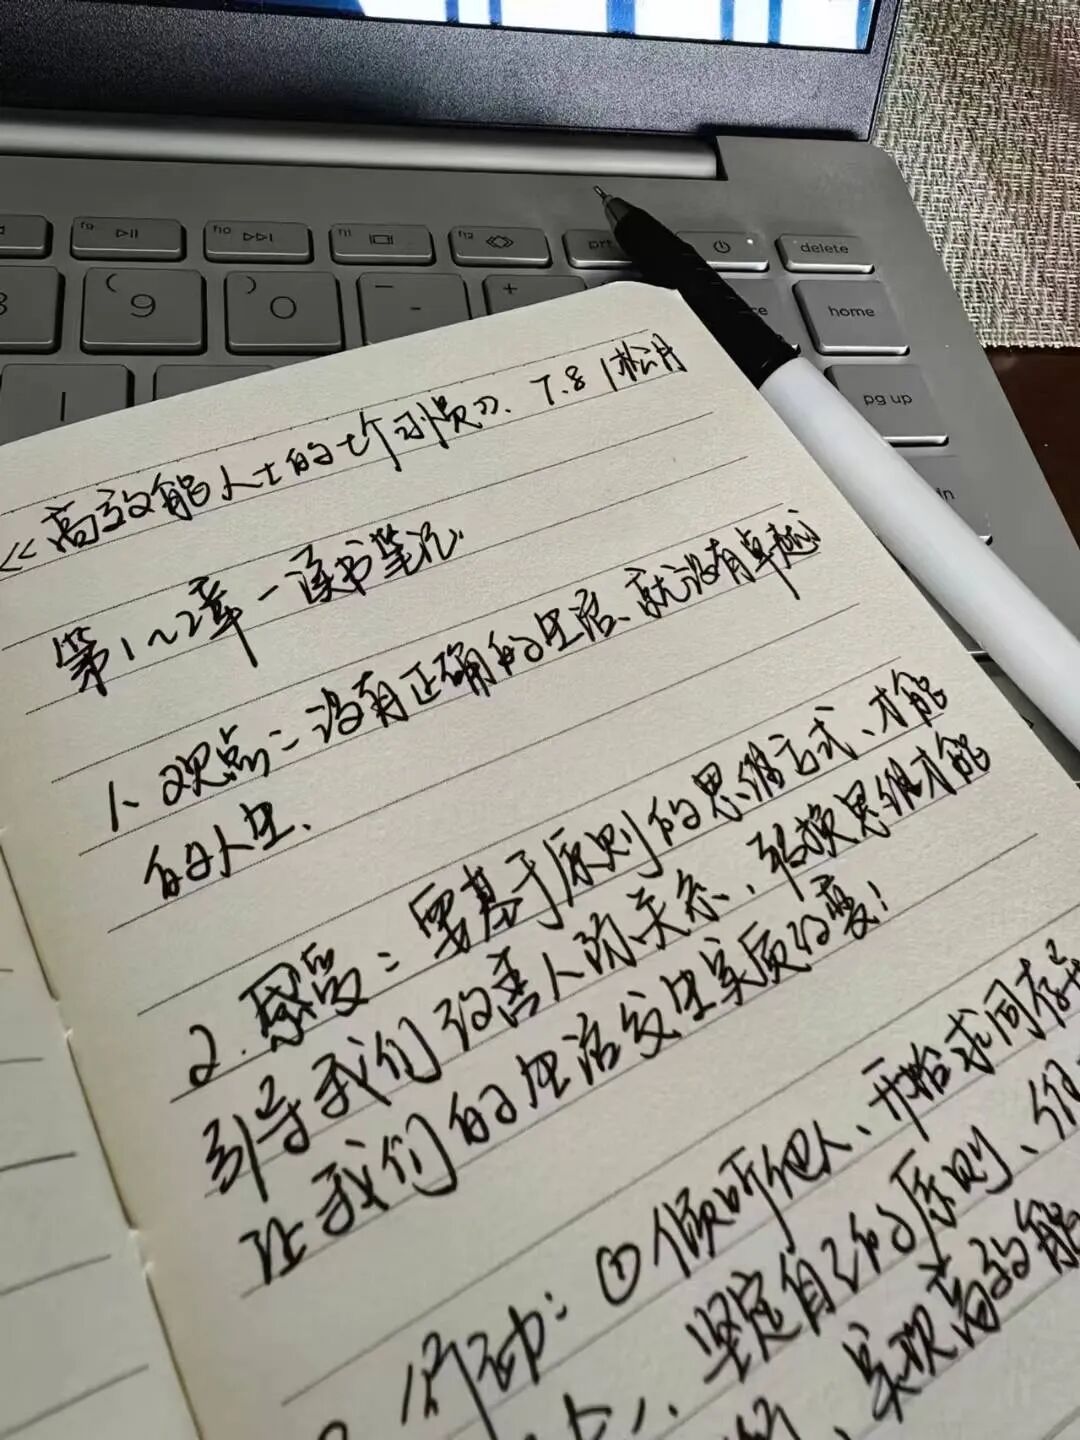 f9
f10
f11
f12
prt
delete
8
( 9
) 0
-
+
home
pg up
《高效能人士的七个习惯》. 7.8 | 松月
第1~2章-读书笔记.
1、观点：没有正确的生活、就没有卓越
的人生.
2. 感受：要基于原则的思维方式、才能
引导我们改善人际关系，转换思维才能
让我们的生活发生实质改变！
行动：①倾听他人、开始求同存
坚定自己的原则、
实现高效能